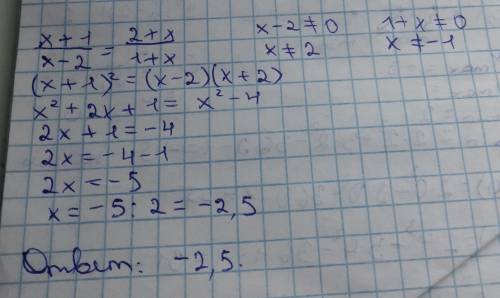 (x+1)/(x-2) = (2+x)/(1+x)   x-2≠0   1+x≠0
x≠2   x≠-1
(x+1)² = (x-2)(x+2)
x²+2x+1 = x²-4
2x+1 = -4
2x = -4-1
2x = -5
x = -5:2 = -2,5
Ответ: -2,5.